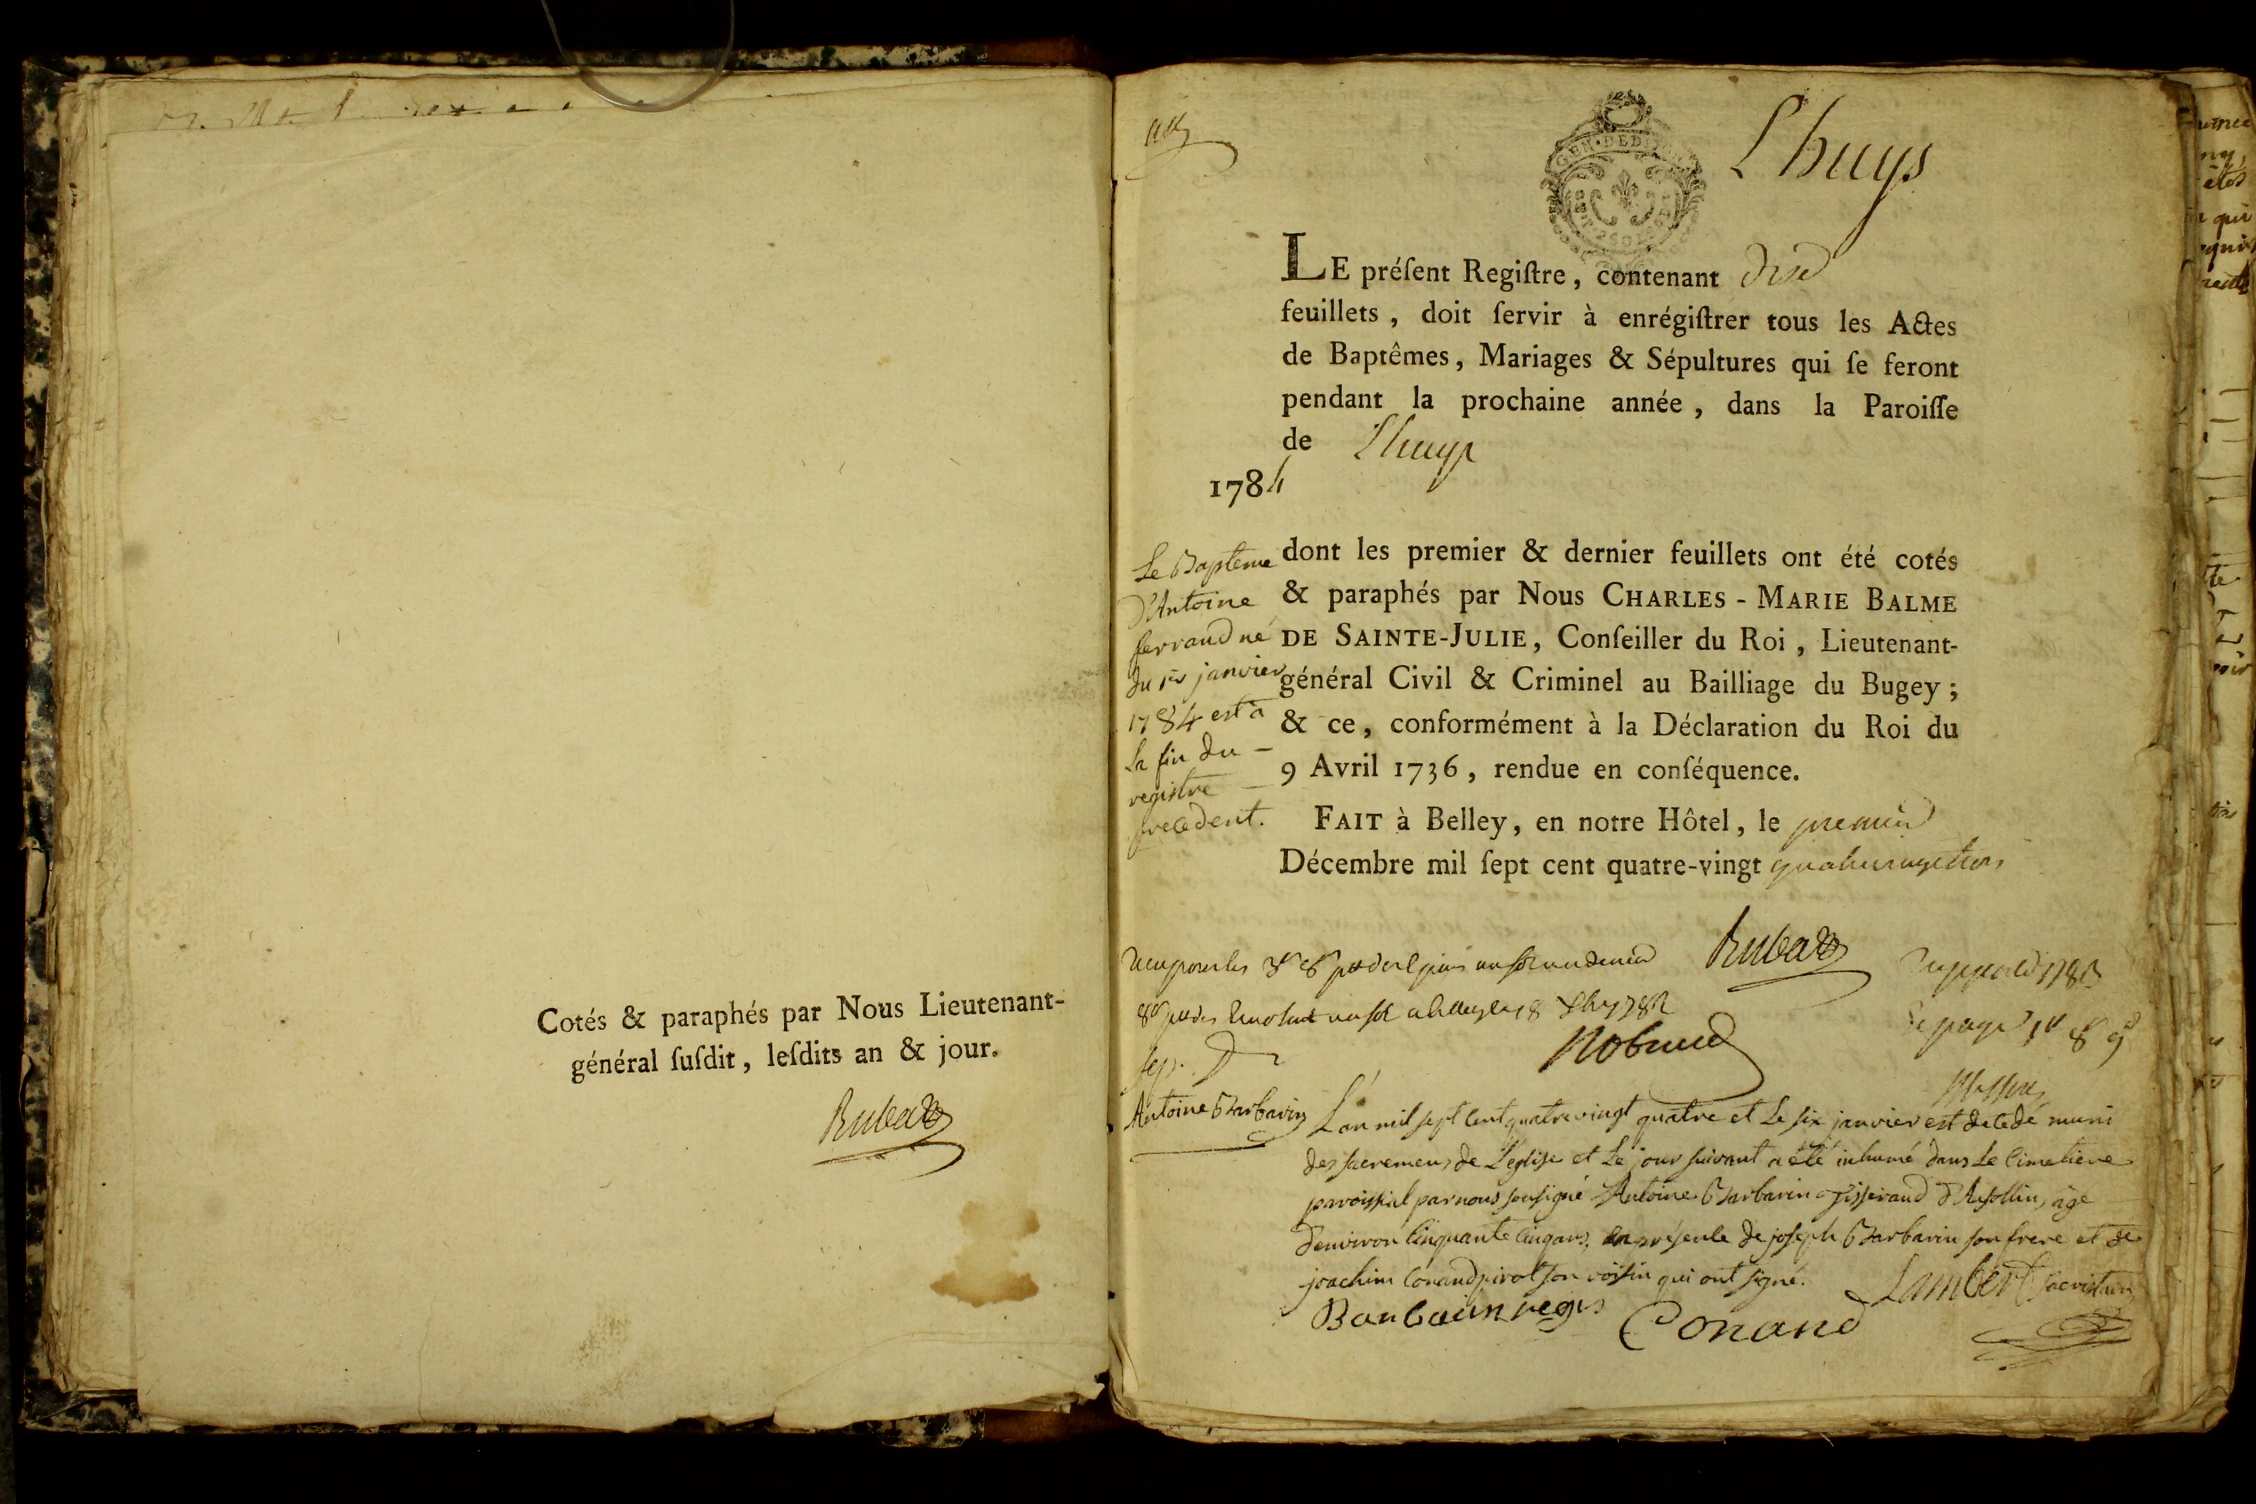 Cotés & paraphés par Nous Lieutenant-
général ſuſdit, leſdits an & jour.
Lhuys
GEN. DED
LE préſent Regiſtre, contenant
feuillets, doit ſervir à enrégiſtrer tous les Actes
de Baptêmes, Mariages & Sépultures qui ſe feront
pendant la prochaine année, dans la Paroiſſe
de Lhuys
1784
Le Bapteme
d'Antoine
ferrand né
du 1er janvier
1784 est a
la fin du
registre
precedent.
dont les premier & dernier feuillets ont été cotés
& paraphés par Nous CHARLES-MARIE BALME
DE SAINTE-JULIE, Conſeiller du Roi, Lieutenant-
général Civil & Criminel au Bailliage du Bugey;
& ce, conformément à la Déclaration du Roi du
9 Avril 1736, rendue en conſéquence.
FAIT à Belley, en notre Hôtel, le premier
Décembre mil ſept cent quatre-vingt
sep.
Antoine Barbarin
L'an mil sept cent quatre vingt quatre et le six janvier est decedé muni
des sacremens de l'eglise et le jour suivant a été inhumé dans le cimetiere
paroissial par nous soussigné Antoine Barbarin tisserand age
d'environ cinquante cinq ans, en présence de joseph Barbarin son frere et de
joachim Conand pivot son voisin qui ont signé.
Lambert sacristain
Barbarin
Conand